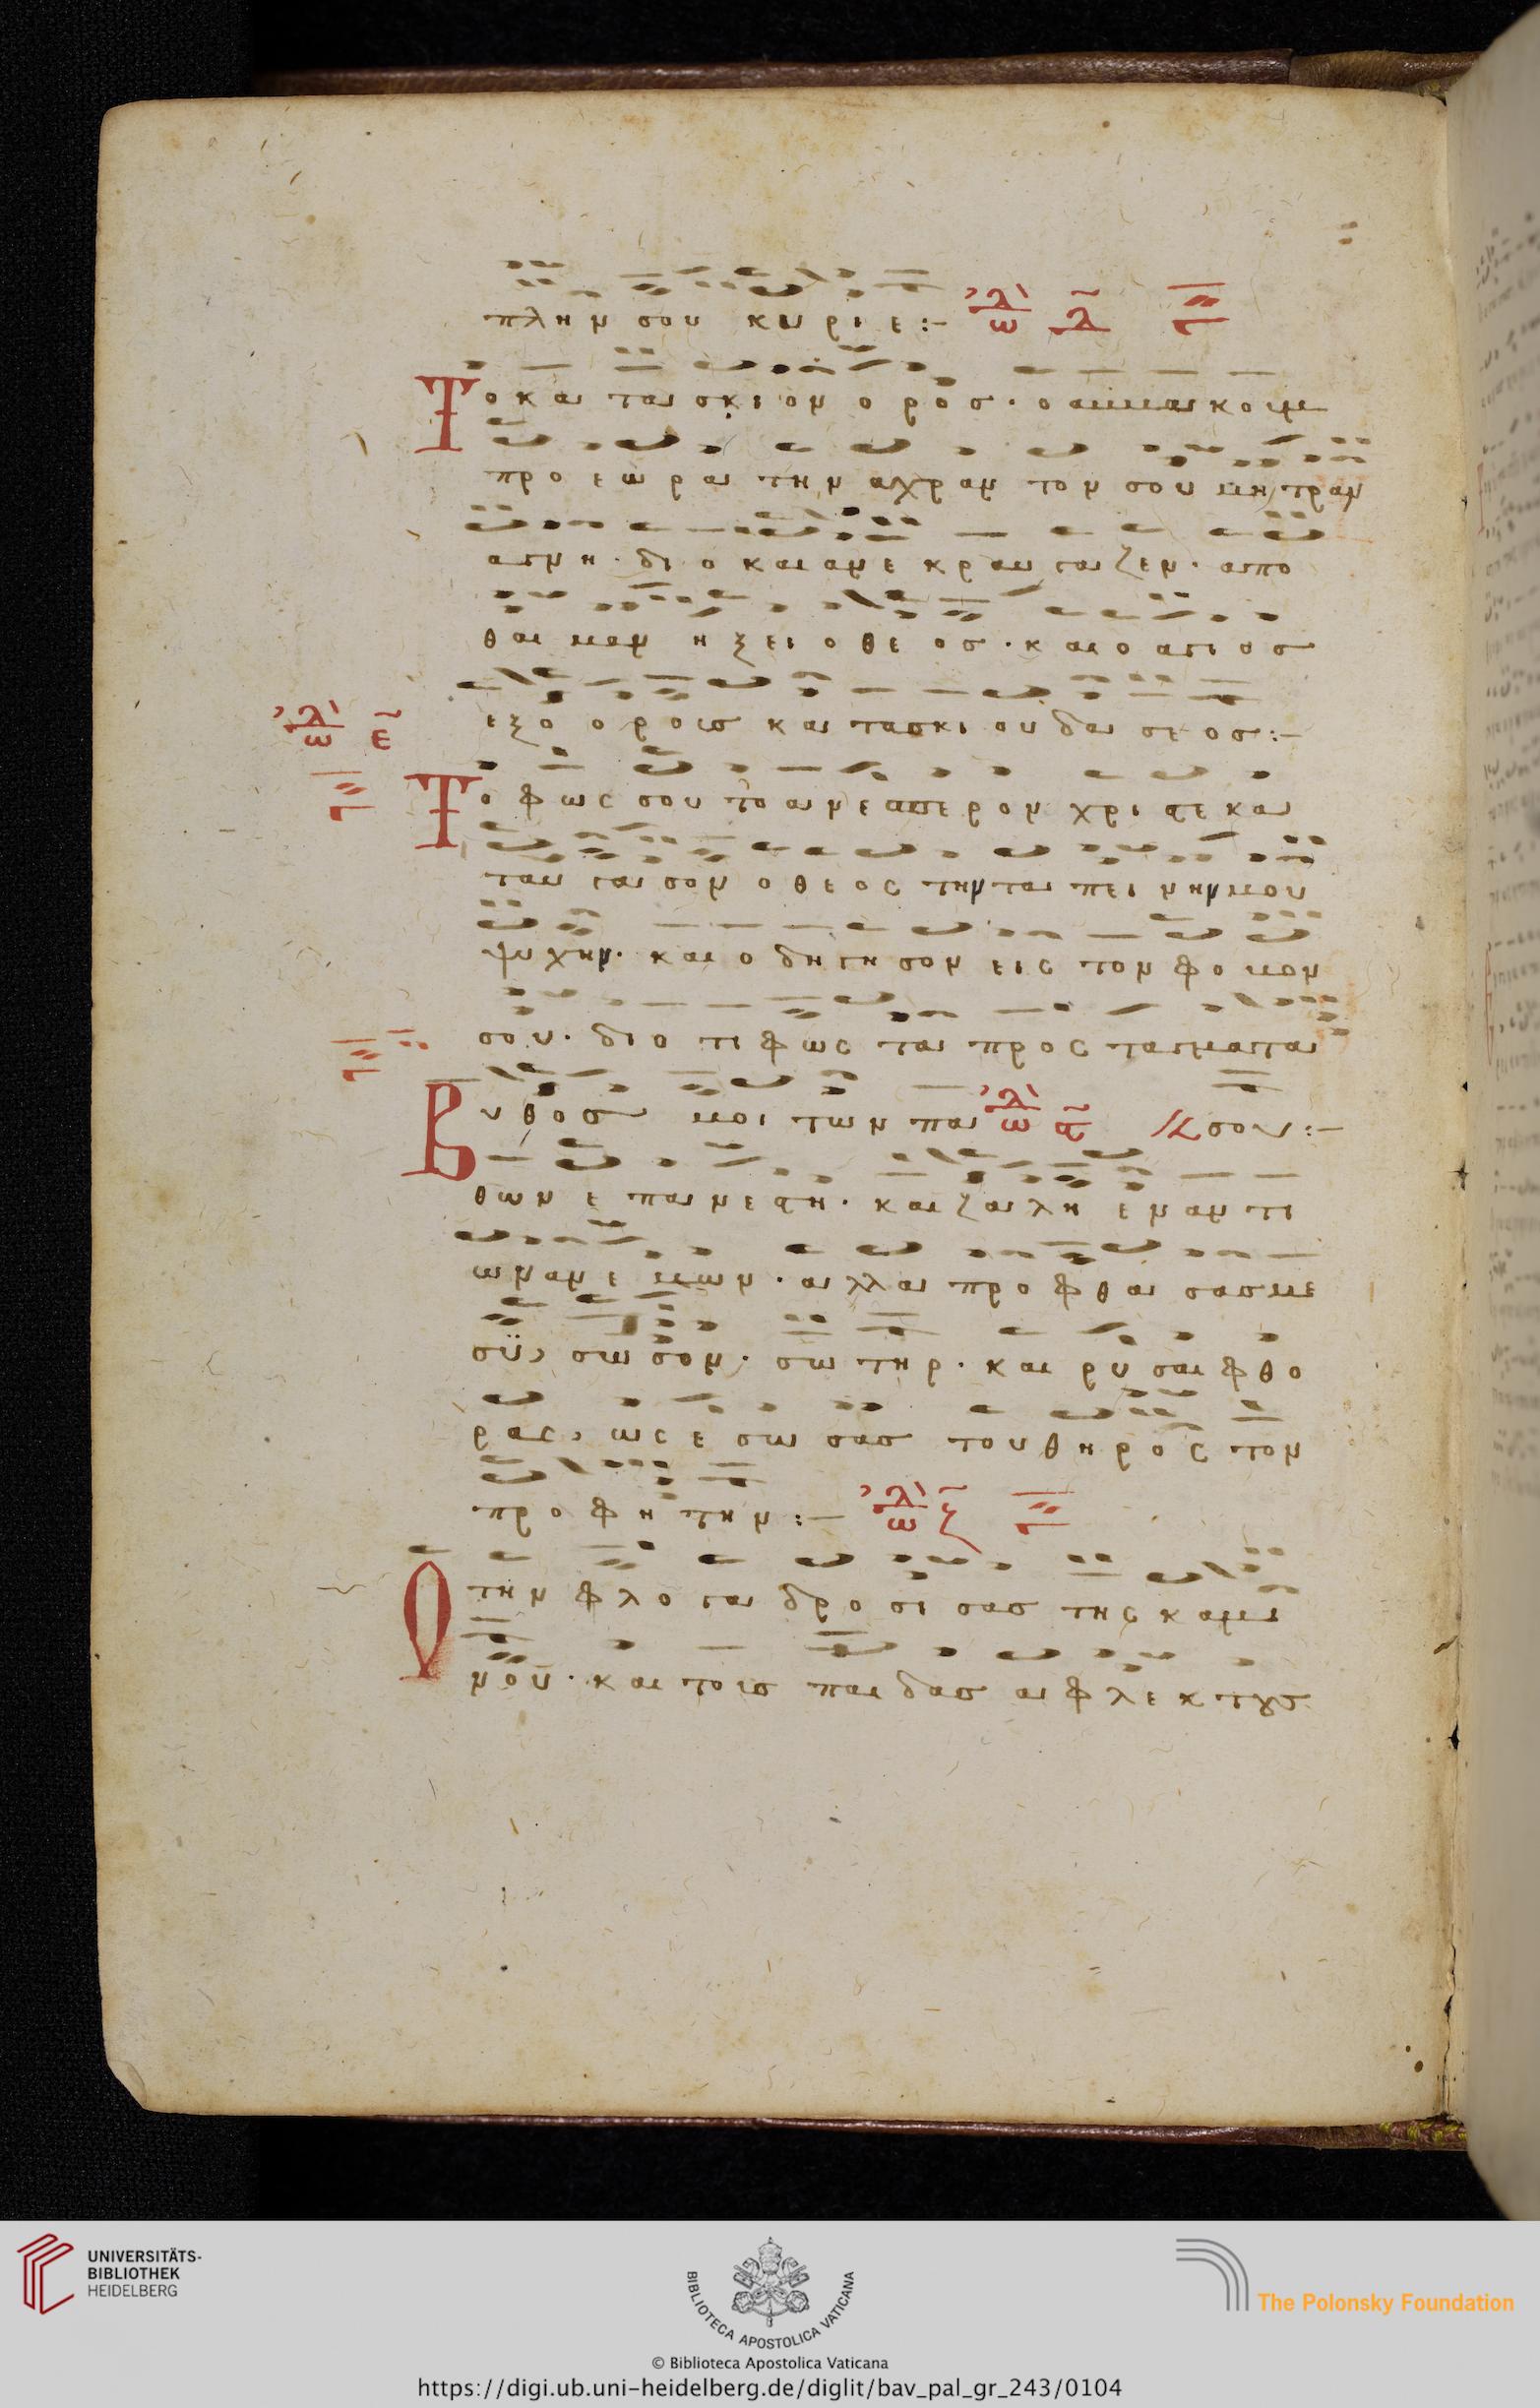 πλην σου κυριε:–
Το κατασκιον οροσ· ο αμμβακουμ
προεωρα την αχραντον σου μητραν
αγνη· διο και ανεκραυγαζεν· απο
θαιμαν ηξει ο θεοσ· και ο αγιοσ
εξ ορουσ κατασκιου δασεοσ:–
Το φως σου το ανεσπερον χριστε κα
ταυγασον ο θεος την ταπεινην μου
ψυχην· και οδηγησον εις τον φοβον
σου· διοτι φως τα προσταγματα
σου:–
Βυθοσ μοι των πα
θων επανεστη· και ζαλη εναντι
ων ανεμων· αλλα προφθασασ με
συ, σωσον· σωτηρ· και ρυσαι φθο
ρας, ως εσωσασ του θηρος τον
προφητην:–
Ο την φλογα δροσισασ της καμι
νου· και τουσ παιδασ αφλεκτουσ
UNIVERSITÄTS-
BIBLIOTHEK
HEIDELBERG
BIBLIOTECA APOSTOLICA VATICANA
The Polonsky Foundation
© Biblioteca Apostolica Vaticana
https://digi.ub.uni-heidelberg.de/diglit/bav_pal_gr_243/0104